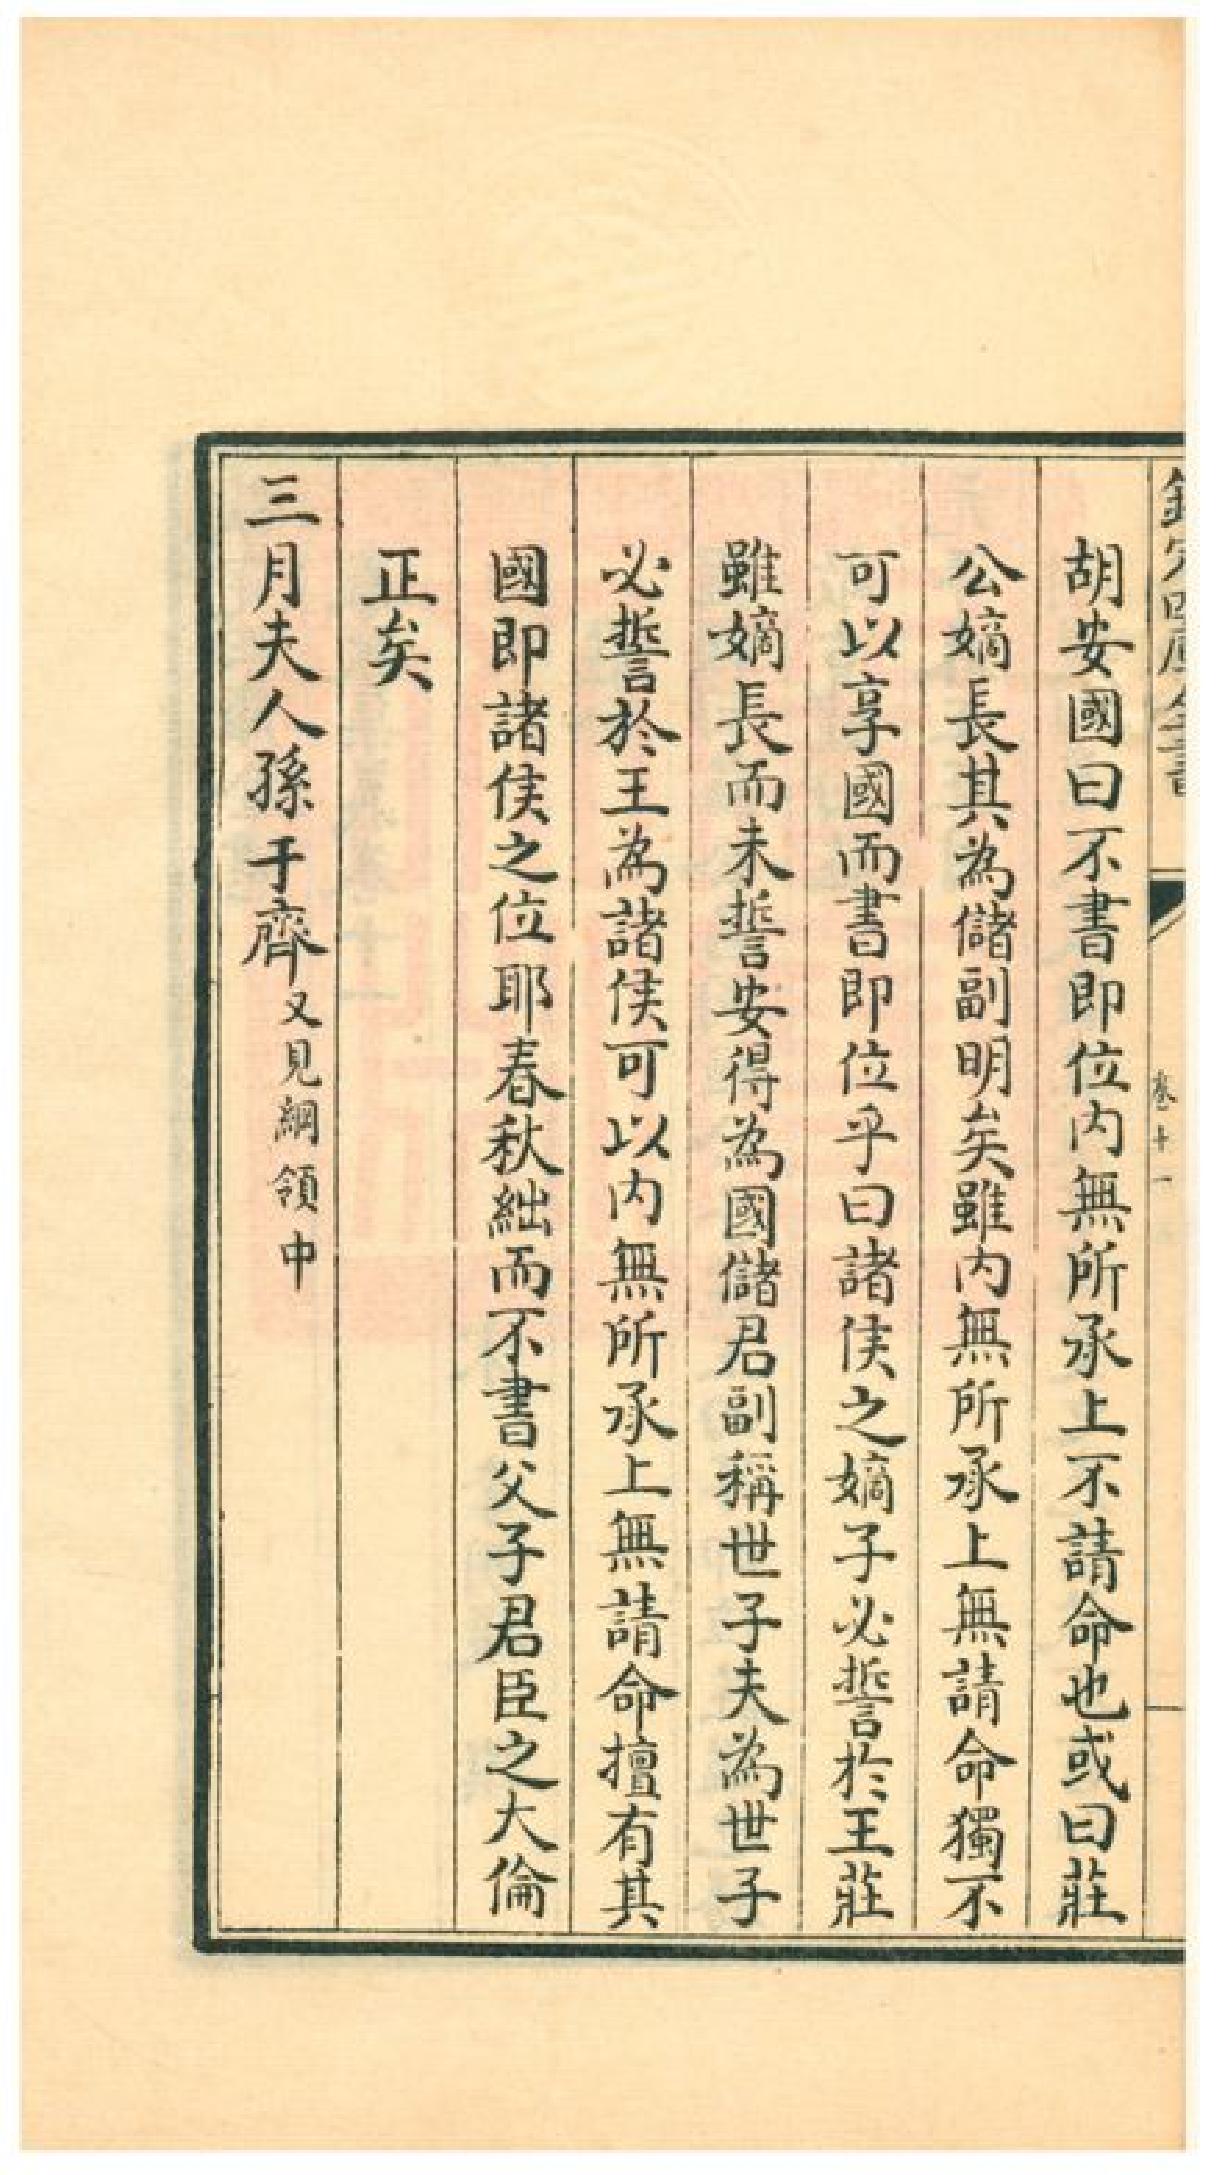 欽定四庫全書
卷十一
胡安國曰不書即位内無所承上不請命也或曰莊
公嫡長其為儲副明矣雖内無所承上無請命獨不
可以享國而書即位乎曰諸侯之嫡子必誓於王莊
雖嫡長而未誓安得為國儲君副稱世子夫為世子
必誓於王為諸侯可以内無所承上無請命擅有其
國即諸侯之位耶春秋絀而不書父子君臣之大倫
正矣
三月夫人孫于齊又見綱領中